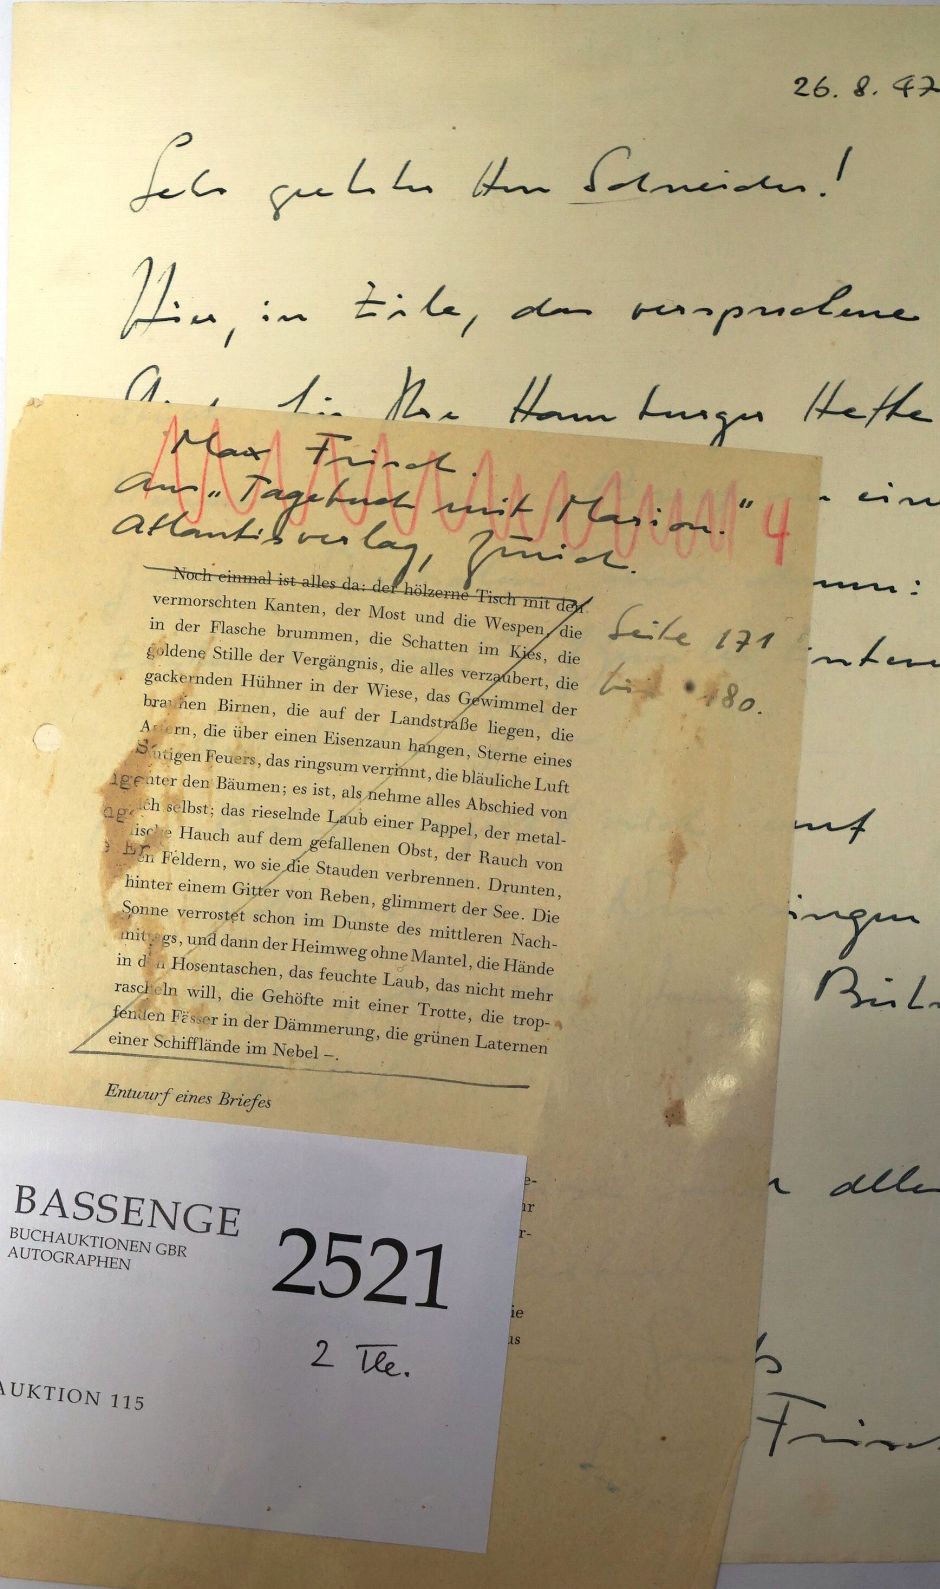 26. 8. 47
Sehr geehrter Herr Schneider!
Hier, in Eile, das versprochene
Ihre Hamburger Hefte
Max Frisch.
aus „Tagebuch mit Marion."
4
Atlantisverlag, Zürich.
Noch einmal ist alles da: der hölzerne Tisch mit den
vermorschten Kanten, der Most und die Wespen, die
in der Flasche brummen, die Schatten im Kies, die
goldene Stille der Vergängnis, die alles verzaubert, die
gackernden Hühner in der Wiese, das Gewimmel der
braunen Birnen, die auf der Landstraße liegen, die
Astern, die über einen Eisenzaun hangen, Sterne eines
blutigen Feuers, das ringsum verrinnt, die bläuliche Luft
unter den Bäumen; es ist, als nehme alles Abschied von
sich selbst; das rieselnde Laub einer Pappel, der metal-
lische Hauch auf dem gefallenen Obst, der Rauch von
den Feldern, wo sie die Stauden verbrennen. Drunten,
hinter einem Gitter von Reben, glimmert der See. Die
Sonne verrostet schon im Dunste des mittleren Nach-
mittags, und dann der Heimweg ohne Mantel, die Hände
in den Hosentaschen, das feuchte Laub, das nicht mehr
rascheln will, die Gehöfte mit einer Trotte, die trop-
fenden Fässer in der Dämmerung, die grünen Laternen
einer Schifflände im Nebel –.
Seite 171
bis 180.
Entwurf eines Briefes
allen
Frisch
BASSENGE
BUCHAUKTIONEN GBR
AUTOGRAPHEN
2521
2 Tle.
AUKTION 115